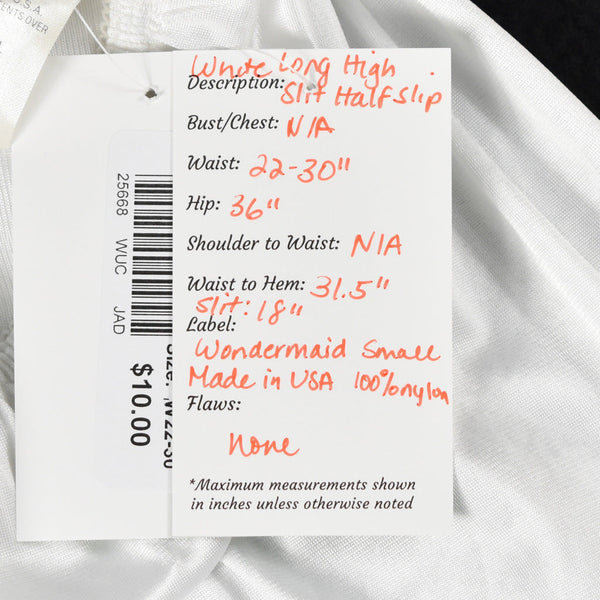 S.A
ENTS OVER
White Long High
Description: Slit Half Slip
Bust/Chest: N/A
Waist: 22-30"
Hip: 36"
Shoulder to Waist: N/A
Waist to Hem: 31.5"
Slit: 18"
Label:
Wondermaid Small
Made in USA 100% nylon
Flaws:
None
*Maximum measurements shown
in inches unless otherwise noted
25668 WUC JAD
Size: W22-30
$10.00